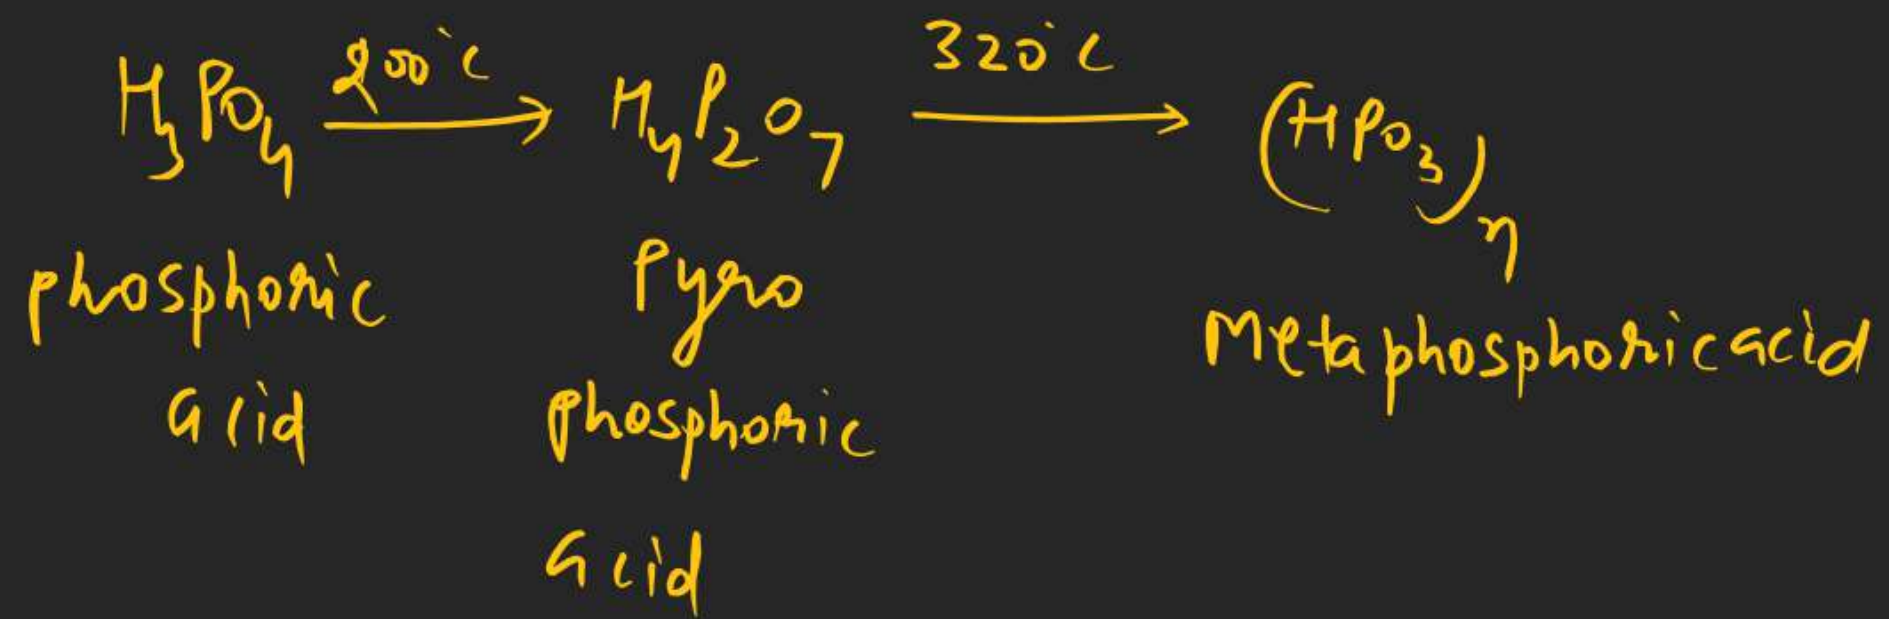 H₃PO₄ —200°C→ H₄P₂O₇ —320°C→ (HPO₃)ₙ
phosphoric acid
Pyro phosphoric acid
Metaphosphoric acid